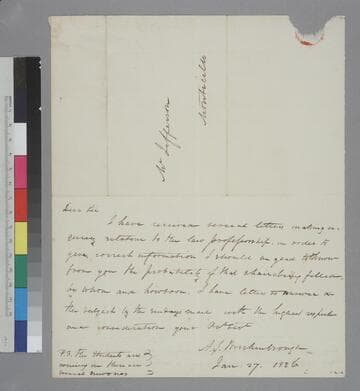 Mr Jefferson
Monticello
Dear Sir
I have received several letters making en-
quiry relative to the law professorship. in order to
give correct information I should be glad to know
from you the probability of that chair being filled
by whom and how soon. I have letter to answer on
the subject by the with the highest respect
and consideration your Obt Svt
A. S. Brockenbrough
Jan. 27. 1826
P.S. the Students are
coming in there are